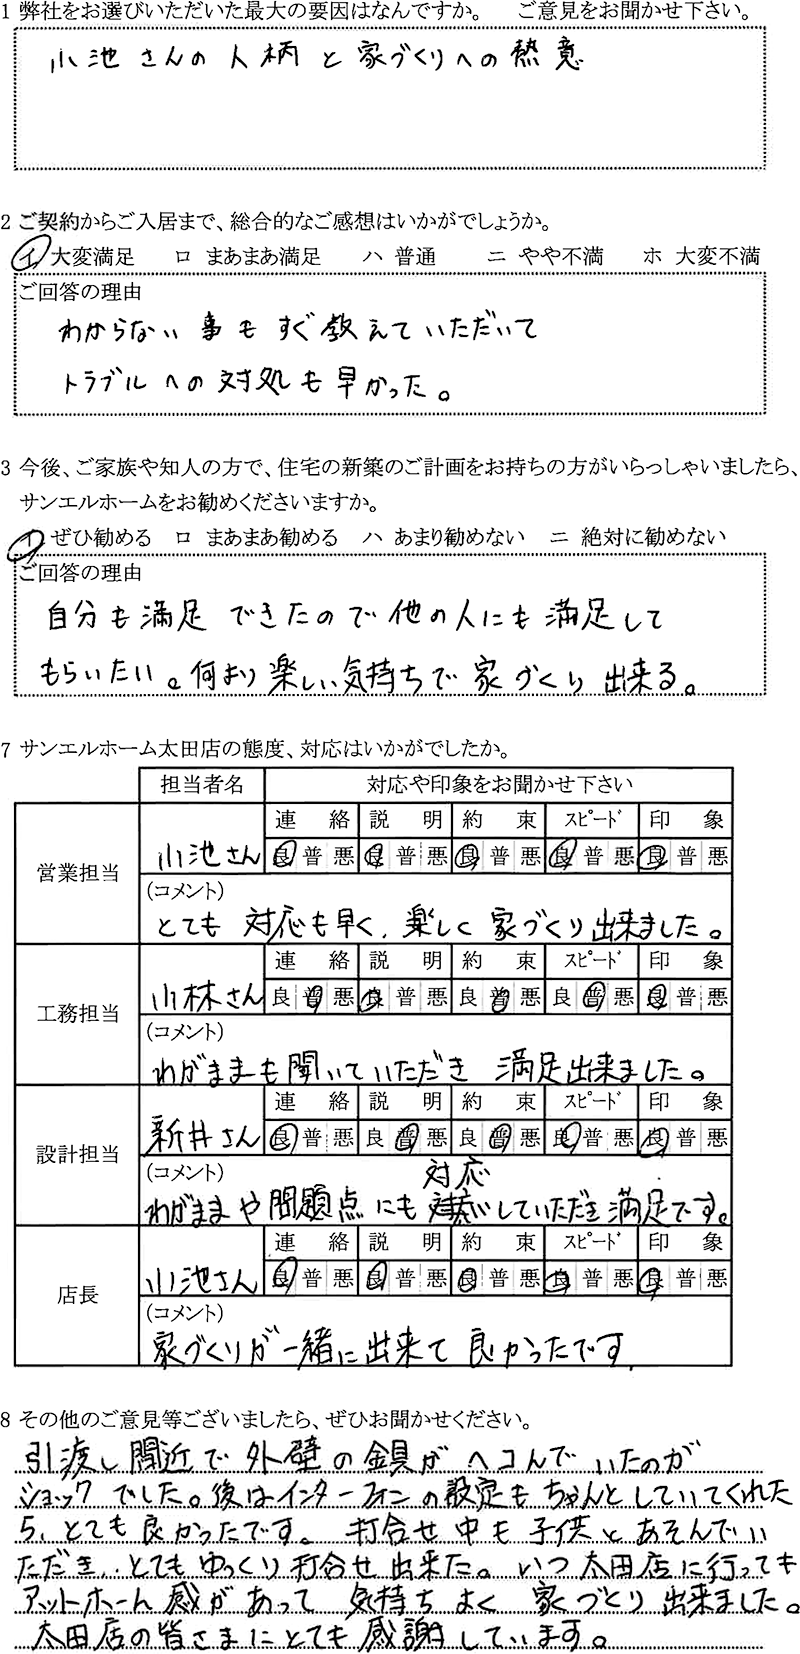 1 弊社をお選びいただいた最大の要因はなんですか。 ご意見をお聞かせ下さい。
小池さんの人柄と家づくりへの熱意
2 ご契約からご入居まで、総合的なご感想はいかがでしょうか。
イ 大変満足 ロ まあまあ満足 ハ 普通 ニ やや不満 ホ 大変不満
ご回答の理由
わからない事もすぐ教えていただいて
トラブルへの対処も早かった。
3 今後、ご家族や知人の方で、住宅の新築のご計画をお持ちの方がいらっしゃいましたら、
サンエルホームをお勧めくださいますか。
イ ぜひ勧める ロ まあまあ勧める ハ あまり勧めない ニ 絶対に勧めない
ご回答の理由
自分も満足できたので他の人にも満足して
もらいたい。何より楽しい気持ちで家づくり出来る。
7 サンエルホーム太田店の態度、対応はいかがでしたか。
担当者名 対応や印象をお聞かせ下さい
営業担当 小池さん
連絡 説明 約束 スピード 印象
良 普 悪 良 普 悪 良 普 悪 良 普 悪 良 普 悪
(コメント)
とても対応も早く、楽しく家づくり出来ました。
工務担当 小林さん
連絡 説明 約束 スピード 印象
良 普 悪 良 普 悪 良 普 悪 良 普 悪 良 普 悪
(コメント)
わがままも聞いていただき満足出来ました。
設計担当 新井さん
連絡 説明 約束 スピード 印象
良 普 悪 良 普 悪 良 普 悪 良 普 悪 良 普 悪
(コメント)
対応
わがままや問題点にも していただき満足です。
店長 小池さん
連絡 説明 約束 スピード 印象
良 普 悪 良 普 悪 良 普 悪 良 普 悪 良 普 悪
(コメント)
家づくりが一緒に出来て良かったです
8 その他のご意見等ございましたら、ぜひお聞かせください。
引渡し間近で外壁の金具がヘコんでいたのが
ショックでした。後はインターフォンの設定もちゃんとしていてくれた
ら、とても良かったです。打合せ中も子供とあそんでい
ただき、とてもゆっくり打合せ出来た。いつ太田店に行っても
アットホーム感があって気持ちよく家づくり出来ました。
太田店の皆さまにとても感謝しています。